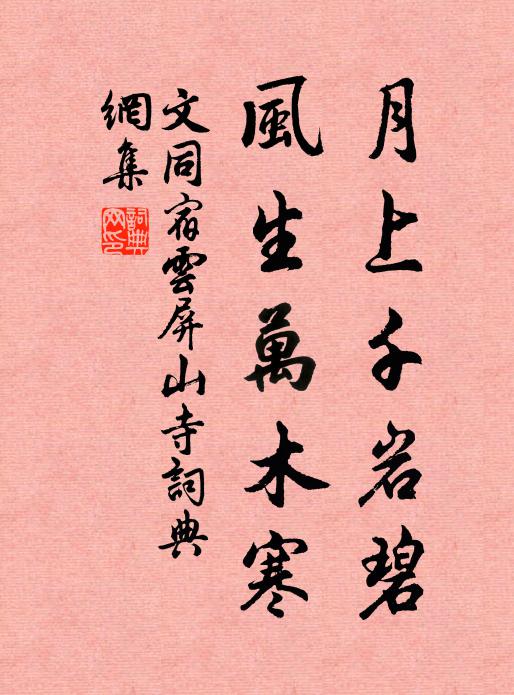 月上千岩碧
風生萬木寒
文同宿雲屏山寺詞典
網集
詞典網印